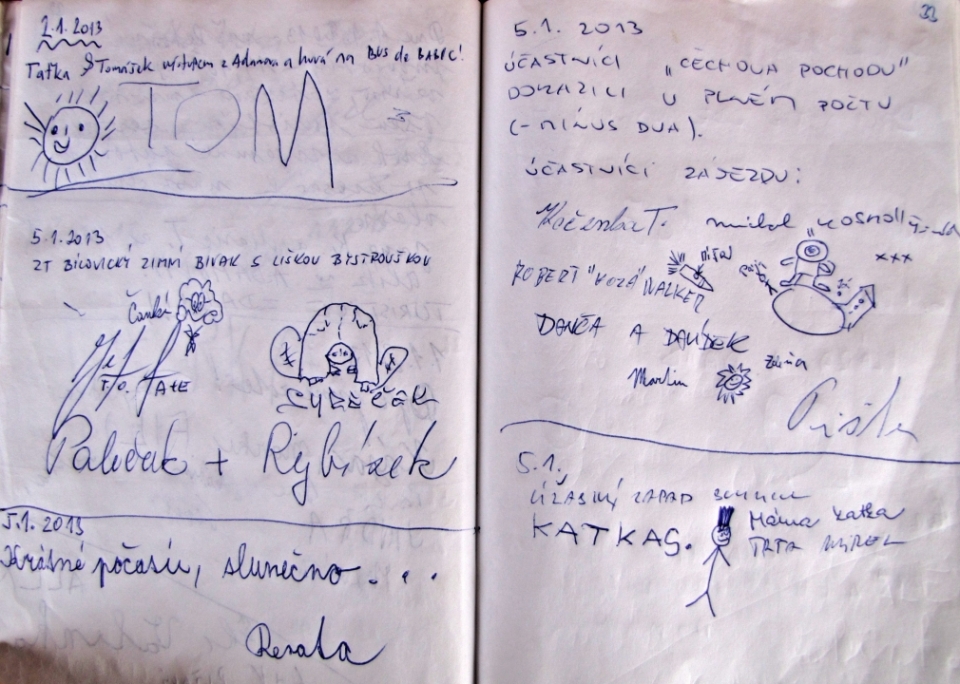 2.1.2013
Taťka & Tomášek výstupem z Adamova a hurá na BUS do BABIC!
TOM
5.1.2013
ZT BÍLOVICKÝ ZIMNÍ BIVAK S LIŠKOU BYSTROUŠKOU
T.O.
Palečák + Rybízek
5.1. 2013
Krásné počasí, slunečno . . .
Renata
32
5.1. 2013
ÚČASTNÍCI „ČECHOVA POCHODU"
DORAZILI V PLNÉM POČTU
(- MÍNUS DVA).
ÚČASTNÍCI ZÁJEZDU:
Kočenka T.
xxx
ROBERT "VOZÁ" WALKER
DANČA A DAVÍDEK
Martin
5.1.
ÚŽASNÝ ZÁPAD SLUNCE
KATKA G.
Máma Katka
TÁTA MIREK